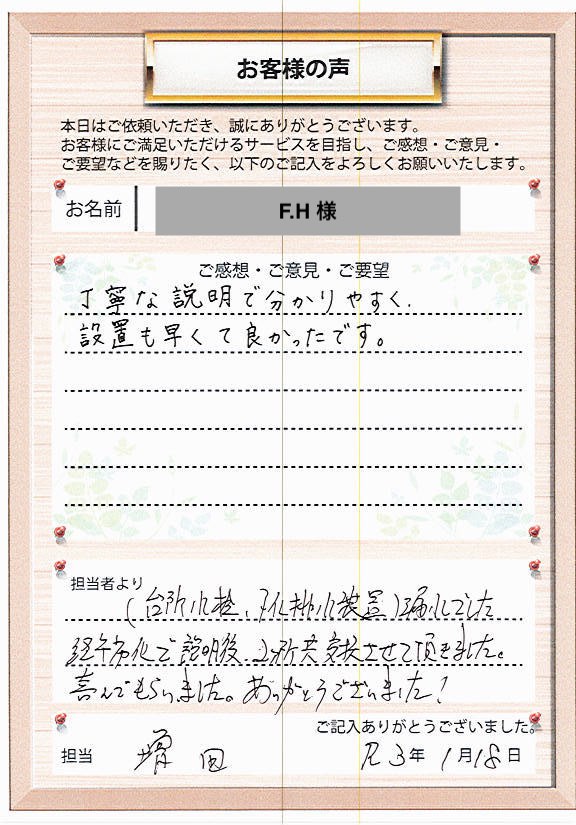 お客様の声
本日はご依頼いただき、誠にありがとうございます。
お客様にご満足いただけるサービスを目指し、ご感想・ご意見・
ご要望などを賜りたく、以下のご記入をよろしくお願いいたします。
お名前 F.H 様
ご感想・ご意見・ご要望
丁寧な説明で分かりやすく、
設置も早くて良かったです。
担当者より
(台所水栓、トイレ排水装置)漏れてました
経年劣化で説明後、2ヶ所共交換させて頂きました。
喜んでもらいました。ありがとうございました!
ご記入ありがとうございました。
担当 増田 R3年1月18日